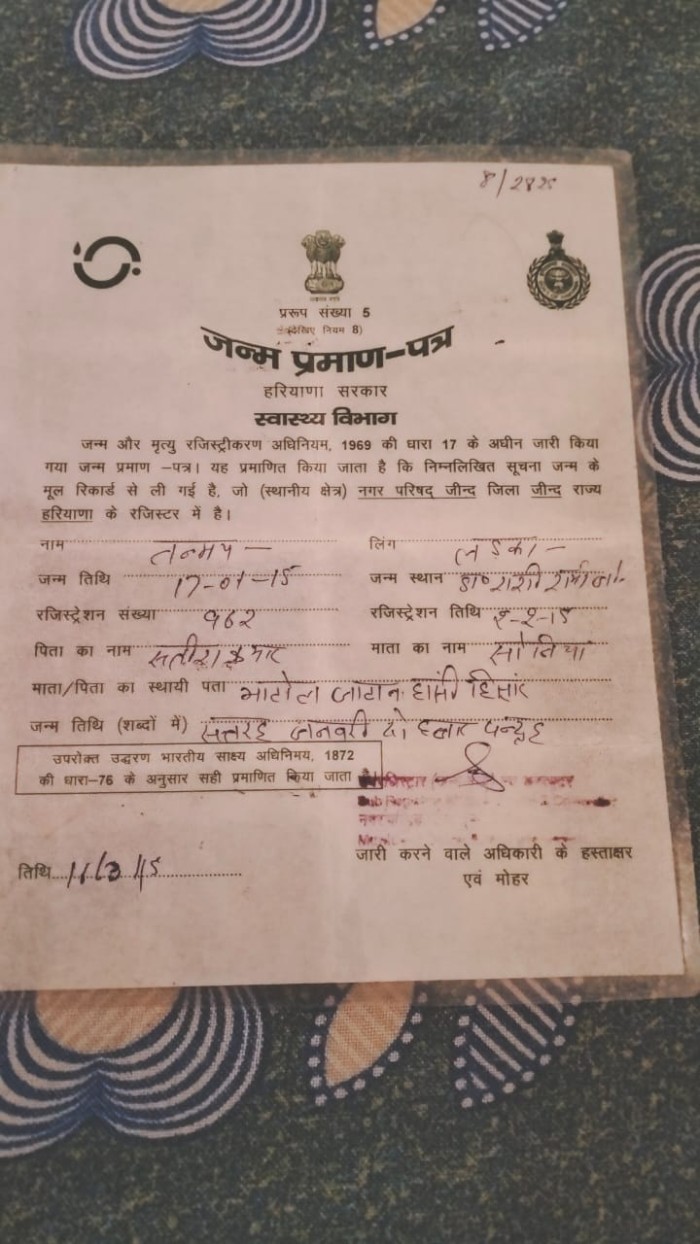 8/2825
प्ररूप संख्या 5
(देखिए नियम 8)
जन्म प्रमाण-पत्र
हरियाणा सरकार
स्वास्थ्य विभाग
जन्म और मृत्यु रजिस्ट्रीकरण अधिनियम, 1969 की धारा 17 के अधीन जारी किया
गया जन्म प्रमाण -पत्र। यह प्रमाणित किया जाता है कि निम्नलिखित सूचना जन्म के
मूल रिकार्ड से ली गई है, जो (स्थानीय क्षेत्र) नगर परिषद् जीन्द जिला जीन्द राज्य
हरियाणा के रजिस्टर में है।
नाम तन्मय - लिंग लडका -
जन्म तिथि 17-01-15 जन्म स्थान डा०
रजिस्ट्रेशन संख्या १६२ रजिस्ट्रेशन तिथि
पिता का नाम सतीश कुमार माता का नाम सोनिया
माता/पिता का स्थायी पता भाटोल जाटान हांसी हिसार
जन्म तिथि (शब्दों में) सत्तरह जनवरी दो हजार पन्द्रह
उपरोक्त उद्धरण भारतीय साक्ष्य अधिनिमय, 1872
की धारा-76 के अनुसार सही प्रमाणित किया जाता
जारी करने वाले अधिकारी के हस्ताक्षर
एवं मोहर
तिथि 11/3/15